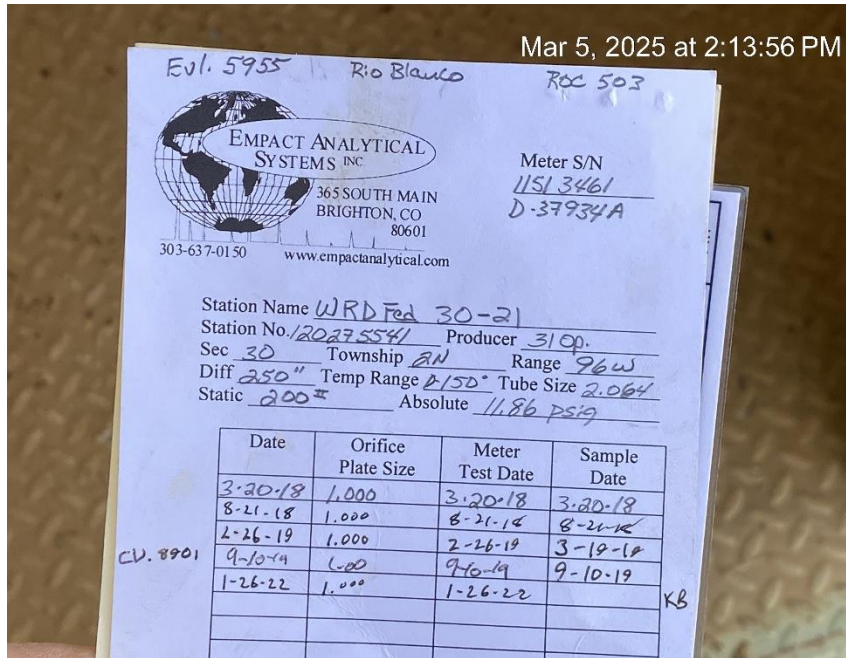 Mar 5, 2025 at 2:13:56 PM
Evl. 5955 Rio Blanco ROC 503
EMPACT ANALYTICAL
SYSTEMS INC
365 SOUTH MAIN
BRIGHTON, CO
80601
303-637-0150 www.empactanalytical.com
Meter S/N
11513461
D-37934A
Station Name WRD Fed 30-21
Station No. 120275541 Producer 31 Op.
Sec 30 Township 2N Range 96W
Diff 250" Temp Range 0-150° Tube Size 2.064
Static 200# Absolute 11.86 psig
Date Orifice Plate Size Meter Test Date Sample Date
3-20-18 1.000 3-20-18 3-20-18
8-21-18 1.000 8-21-18 8-21-18
2-26-19 1.000 2-26-19 3-19-19
CV. 8901 9-10-19 1.00 9-10-19 9-10-19
1-26-22 1.000 1-26-22 KB